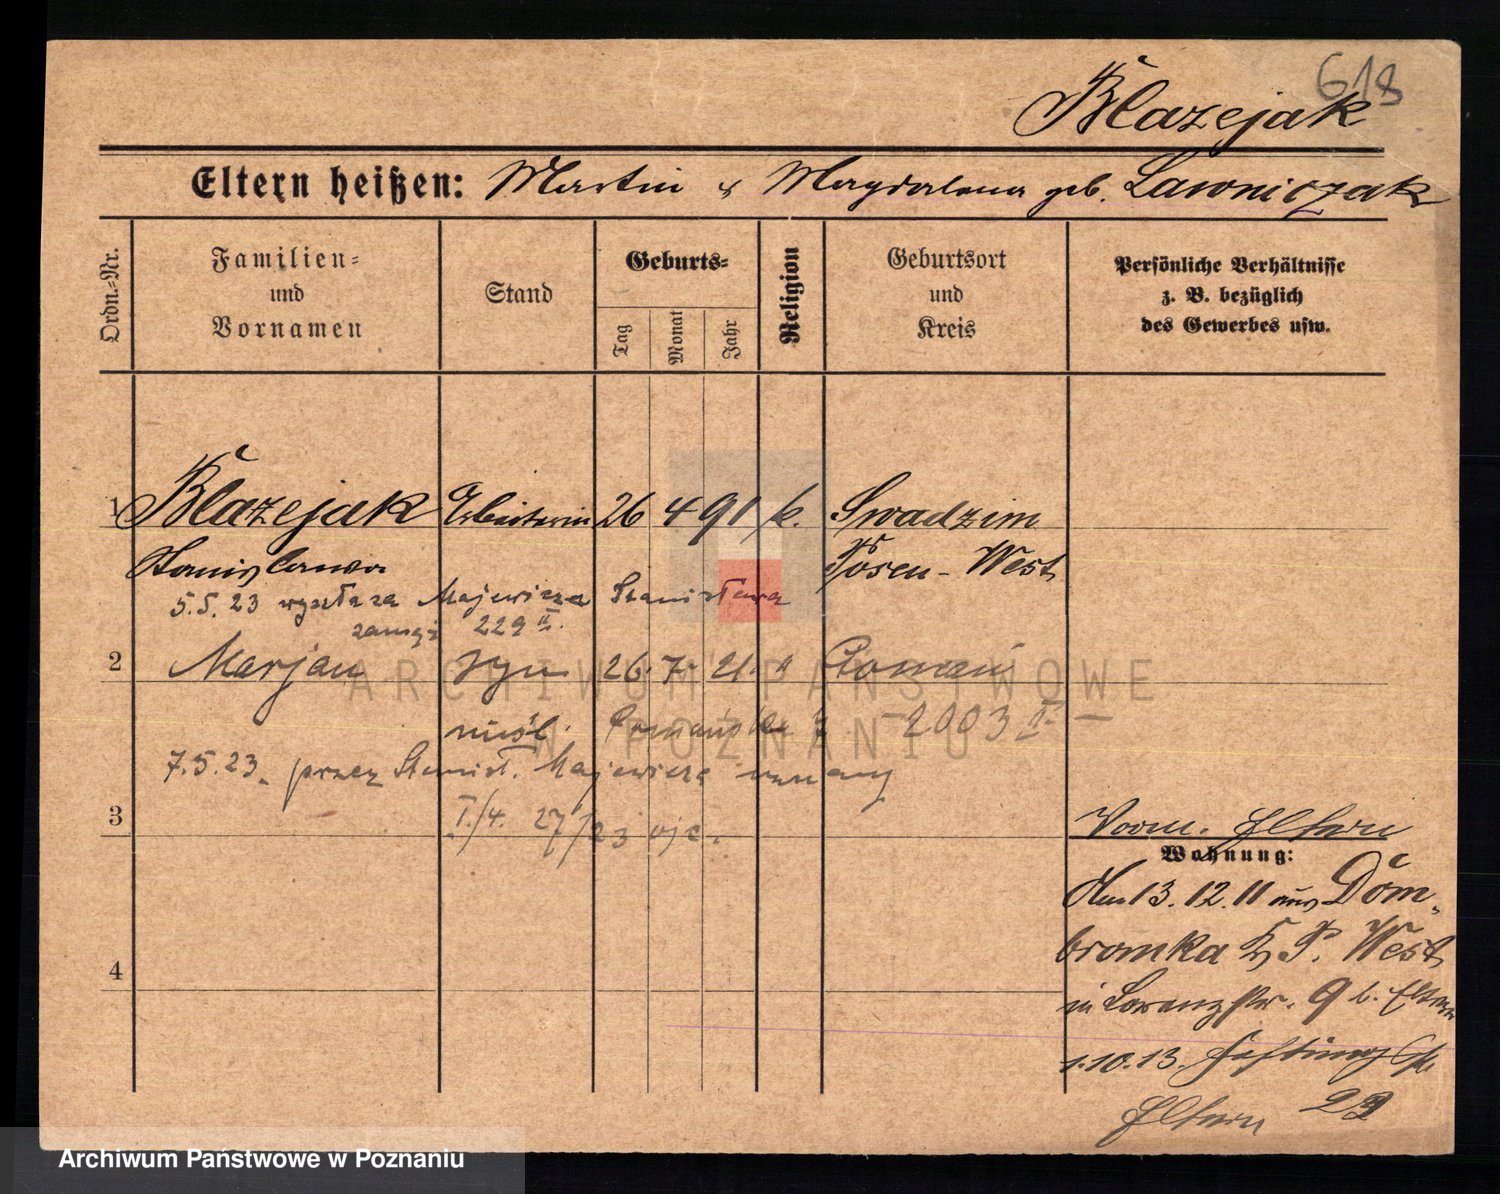 618
Blazejak
Eltern heißen: Martin u Magdalena geb. Lawniczak
Ordn.-Nr.
Familien- und Vornamen
Stand
Geburts-
Tag
Monat
Jahr
Religion
Geburtsort und Kreis
Persönliche Verhältnisse z. B. bezüglich des Gewerbes usw.
1 Blazejak Arbeiterin 26 4 91 k. Swadzim
Stanislawa Posen-West
5.5.23 wyszła za Majewicza Stanisława
zamąż 229 II.
2 Marjan syn 26. 7. 21. " Poznań
nieśl. Poznańska 7 - 2003 II -
7.5.23. przez Stanisł. Majewicza uznany
I./4. 27/23 ojc.
3
Vorm. Eltern
Wohnung:
Am 13.12.11 aus Dom-
bromka Kr P. West
in Lorenzstr. 9 b. Eltern
4
1.10.13.
Eltern
Archiwum Państwowe w Poznaniu
ARCHIWUM PAŃSTWOWE
W POZNANIU